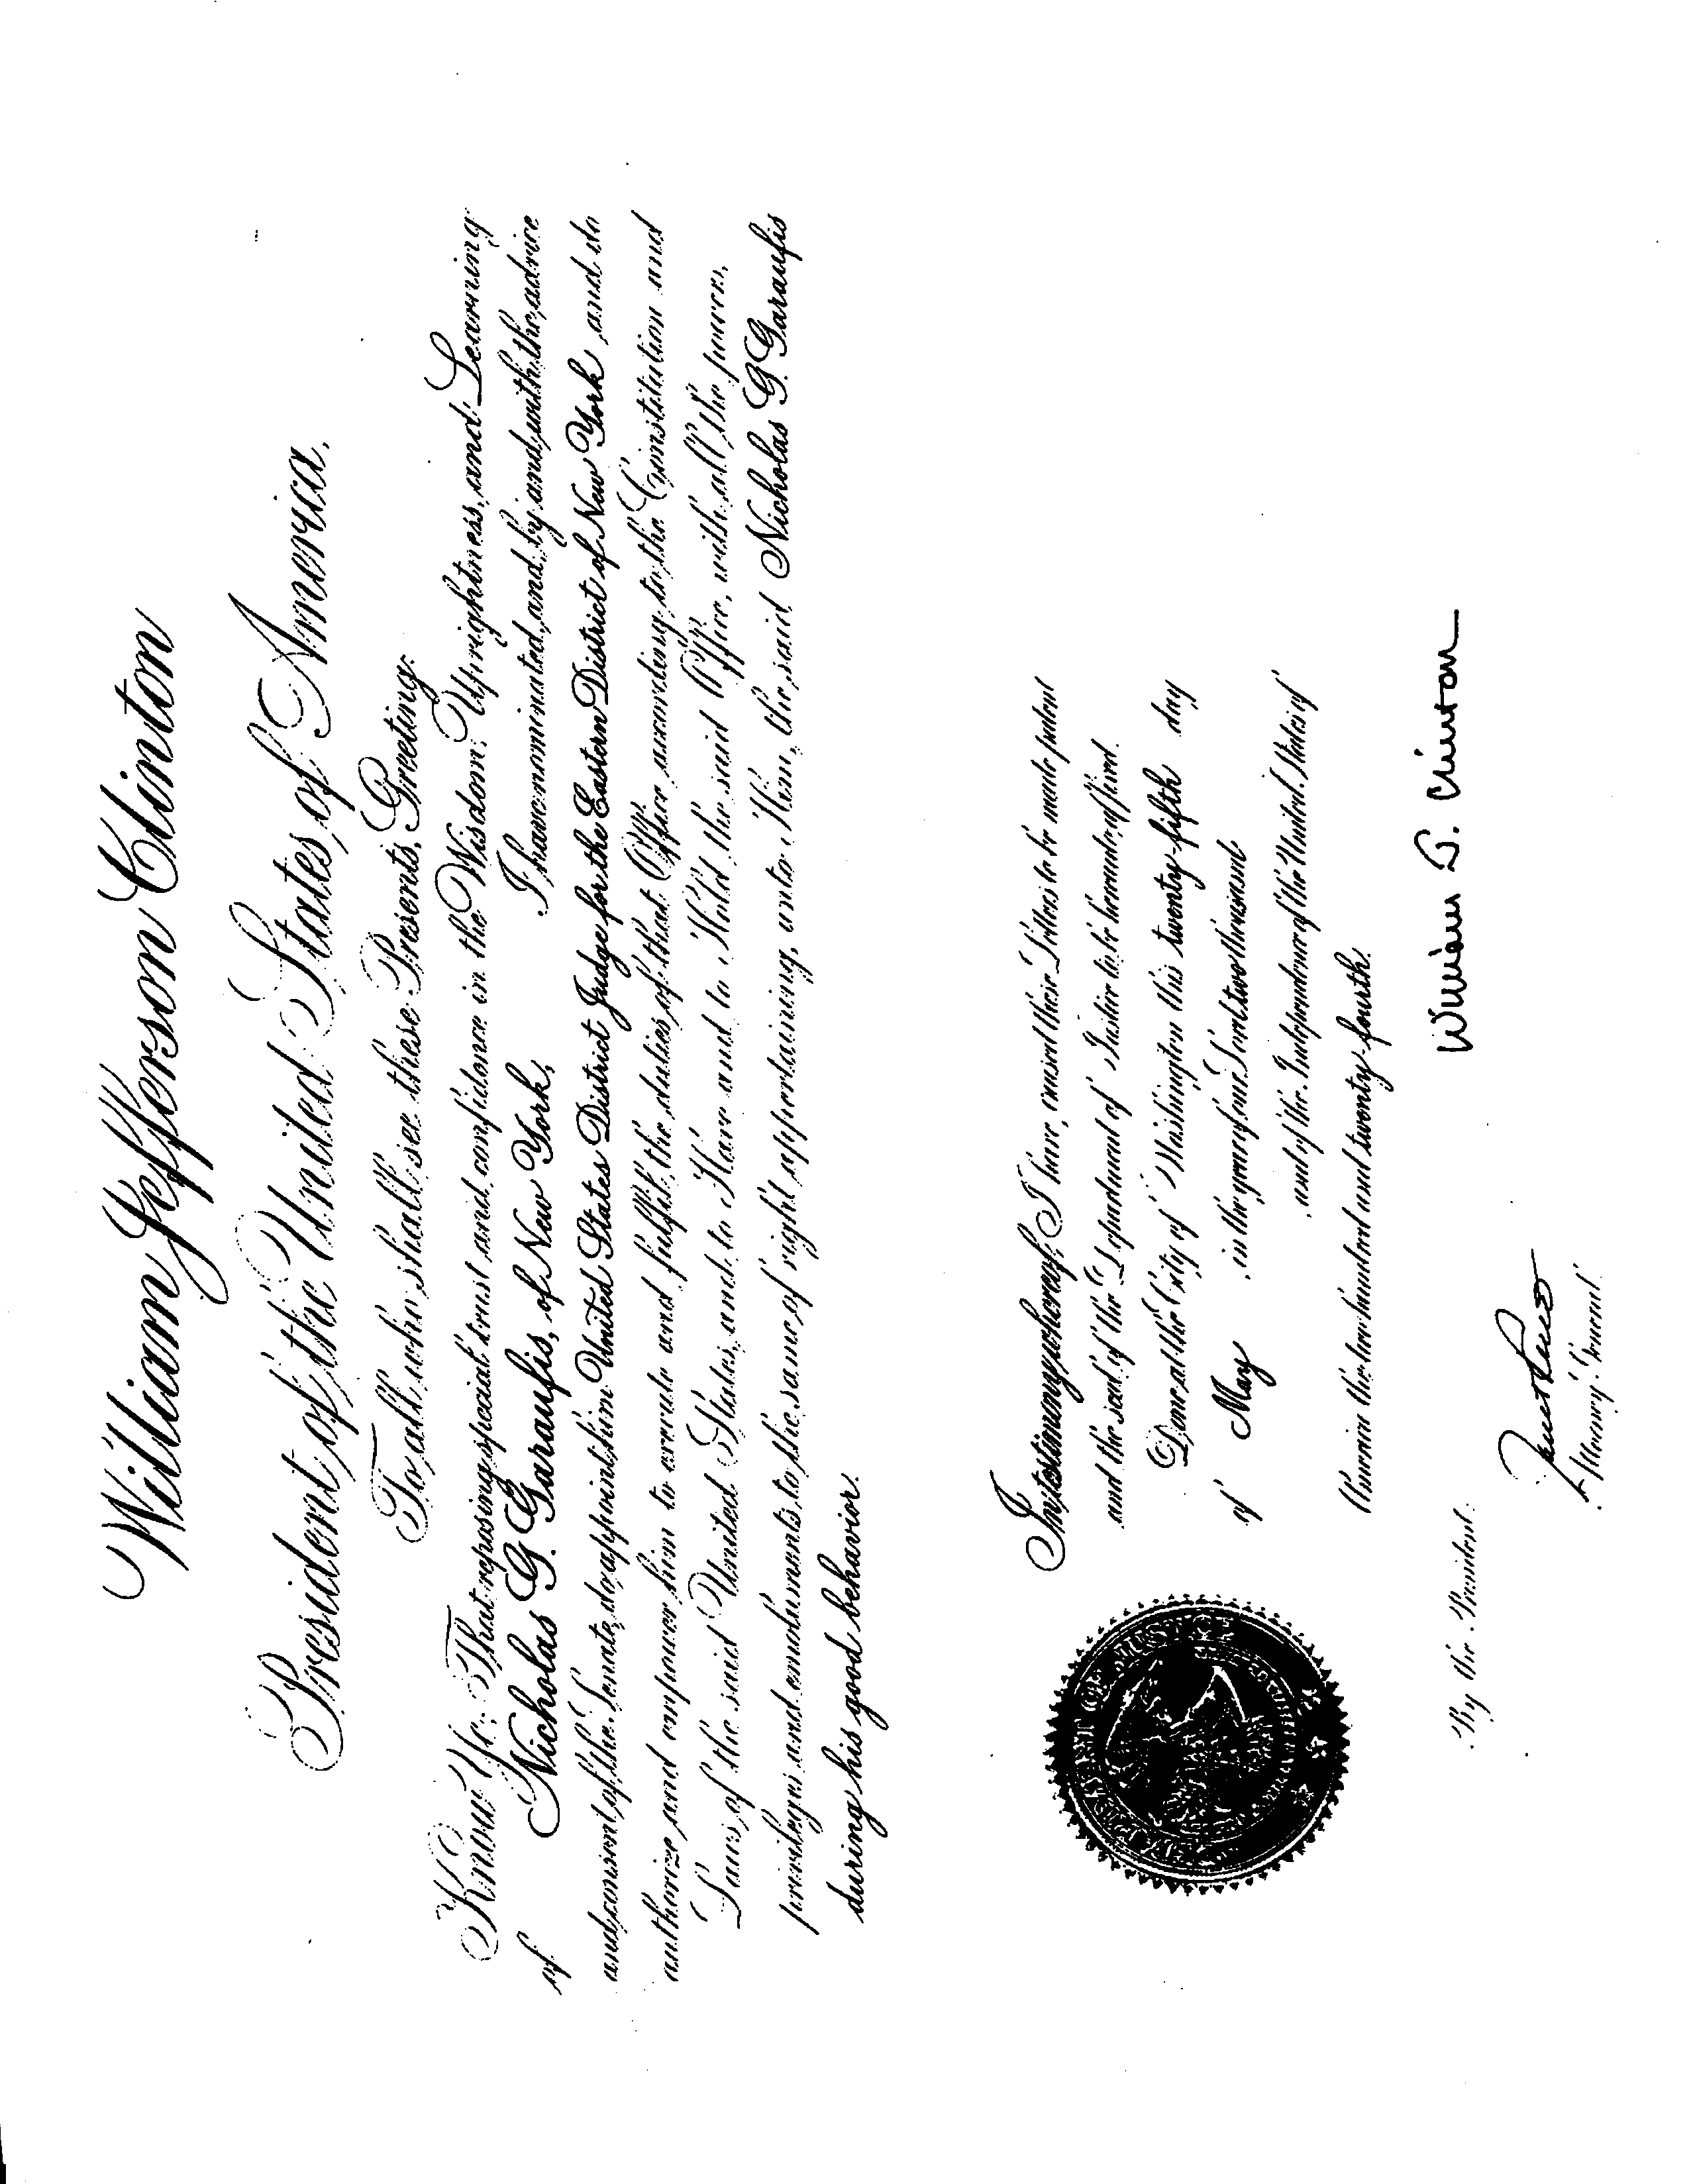 William Jefferson Clinton
President of the United States of America,
To all who shall see these Presents, Greeting:
Know Ye: That reposing special trust and confidence in the Wisdom, Uprightness, and Learning
of Nicholas G. Garaufis, of New York, I have nominated, and, by and with the advice
and consent of the Senate, do appoint him United States District Judge for the Eastern District of New York and do
authorize and empower him to execute and fulfil the duties of that Office according to the Constitution and
Laws of the said United States, and to Have and to Hold the said Office, with all the powers,
privileges and emoluments to the same of right appertaining, unto Him, the said Nicholas G. Garaufis
during his good behavior.
In testimony whereof, I have caused these Letters to be made patent
and the seal of the Department of Justice to be hereunto affixed.
Done at the City of Washington this twenty-fifth day
of May in the year of our Lord two thousand
, and of the Independence of the United States of
America the two hundred and twenty-fourth.
William J. Clinton
By the President:
Janet Reno
Attorney General
DEPARTMENT OF JUSTICE